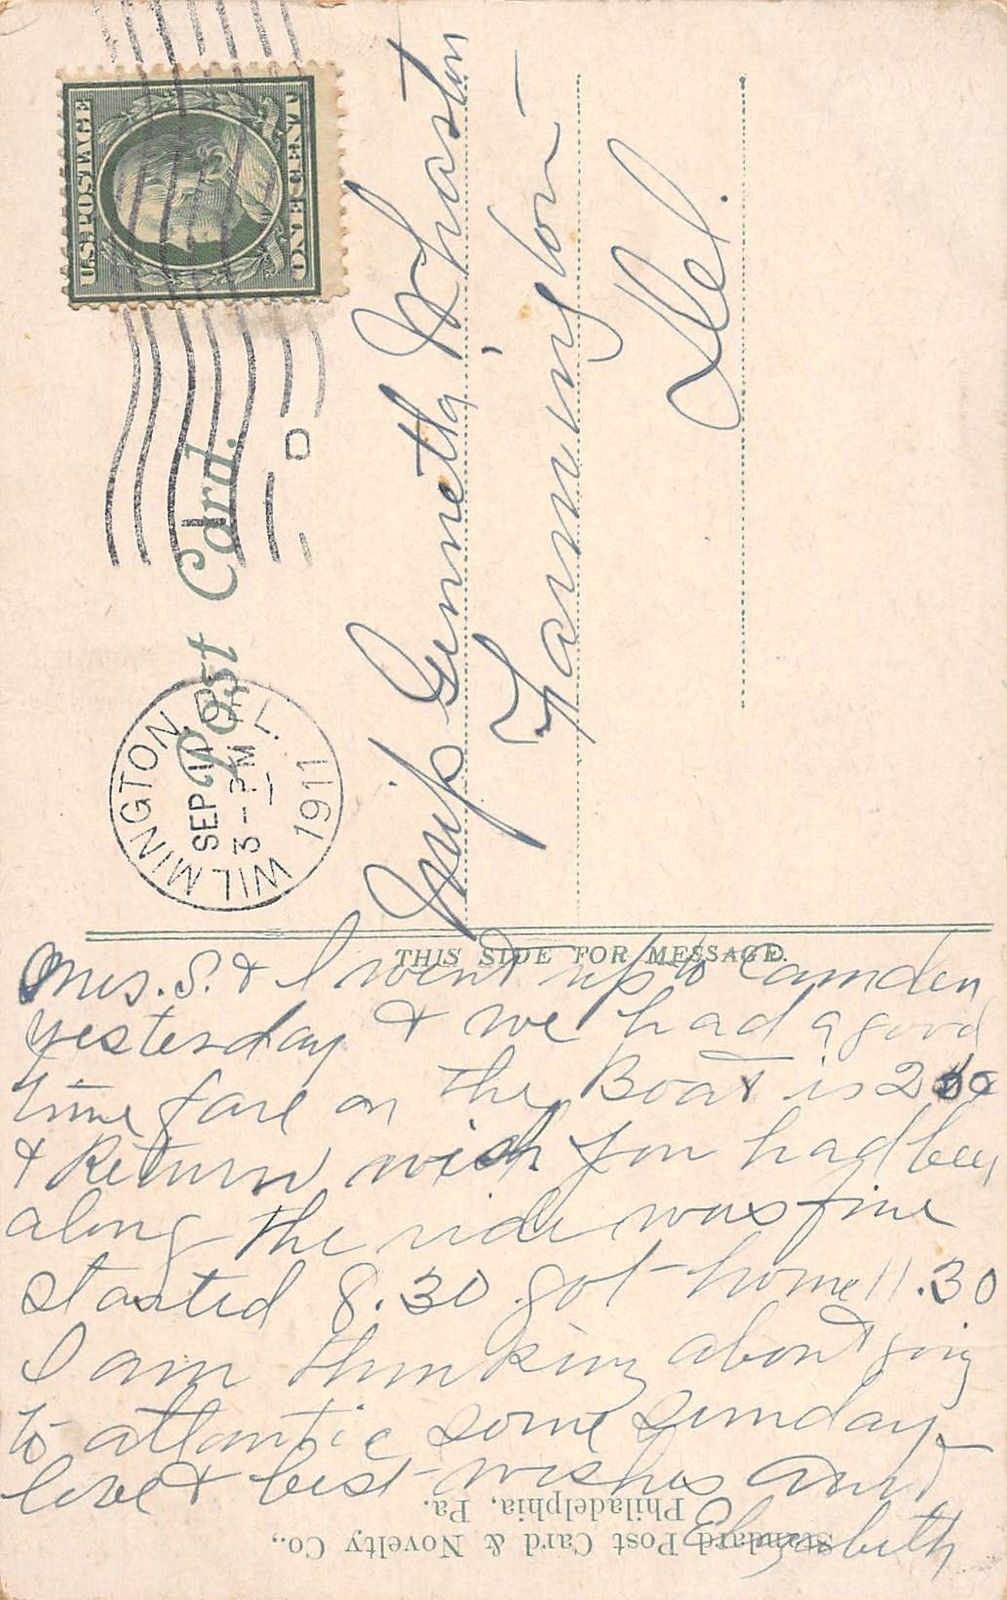 U.S. POSTAGE
ONE CENT
Post Card.
WILMINGTON, DEL.
SEP 11
3 - PM
1911
D
Miss Gunnetta Wharton
Farmington
Del.
THIS SIDE FOR MESSAGE.
Mrs. S. & I went up to Camden
yesterday & we had a good
time fare on the Boat is
& Return wish you had been
along the ride was fine
started 8.30 got home 11.30
I am thinking about going
to atlantic some sunday
love & best wishes Aunt
Elizabeth
Standard Post Card & Novelty Co.,
Philadelphia, Pa.